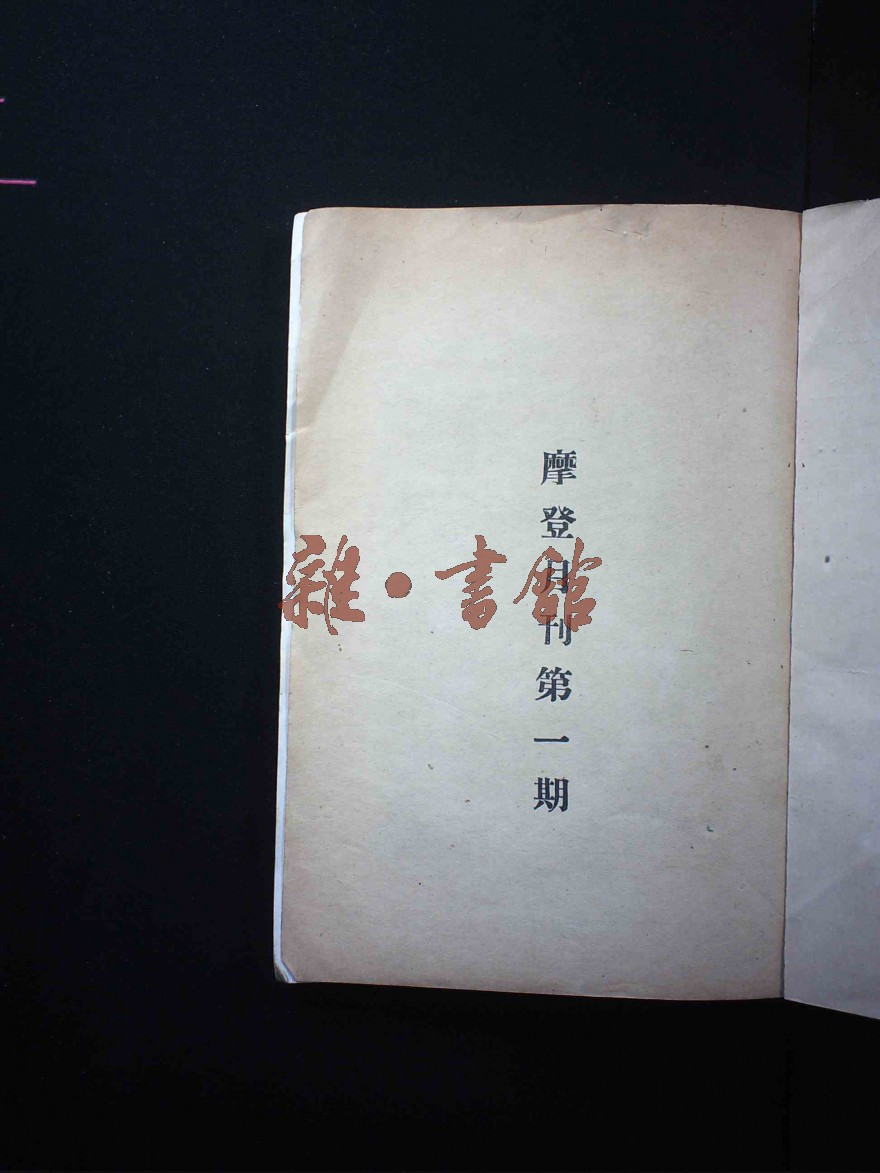 摩登月刊第一期
雜·書館